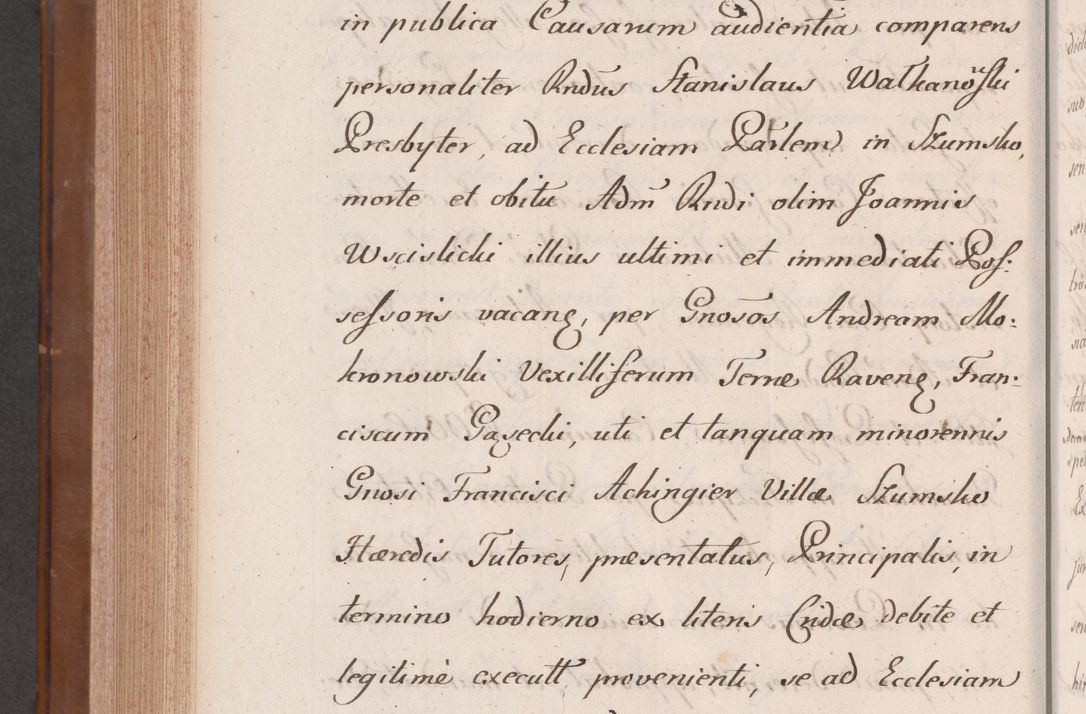 in publica Causarum audientia comparens
personaliter Rndus Stanislaus Walkanoski
Presbyter, ad Ecclesiam Parlem in Szumsko,
morte et obitu Adm Rndi olim Joannis
Wscislicki illius ultimi et immediati Pos:
sessoris vacanę, per Gnosos Andream Mo:
kronowski Vexilliferum Terræ Ravenę, Fran:
ciscum Gąsecki, uti et tanquam minorennis
Gnosi Francisci Achingier Villæ Szumsko
Hæredis Tutores, præsentatus, Principalis, in
termino hodierno ex literis Cridæ debite et
legitimè executt provenienti, se ad Ecclesiam